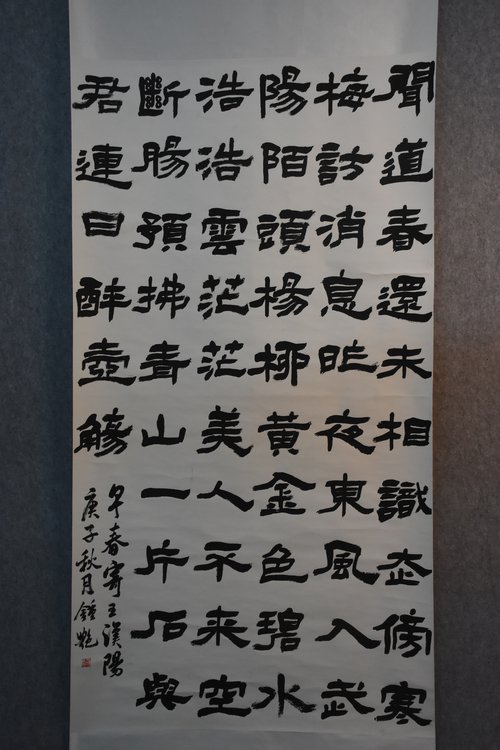 聞道春還未相識走傍寒
梅訪消息昨夜東風入武
陽陌頭楊柳黃金色碧水
浩浩雲茫茫美人不來空
斷腸預拂青山一片石與
君連日醉壺觴
早春寄王漢陽
庚子秋月鍾艷